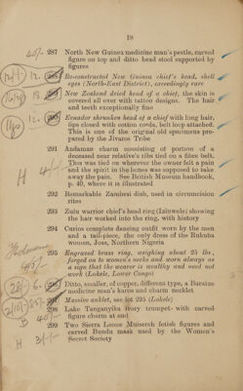 18
40/- 287 North New Guinea medicine man's pestle, carved
figure on top and ditto head stool supported by
figures
12. Reconstructed New Guinea chief's head, shell
eyes (North-East District), exceedingly rare
New Zealand dried head of a chief, the skin is
covered all over with tattoo designs. The hair
and teeth exceptionally fine
12. Ecuador shrunken head of a chief with long hair,
lips closed with cotton cords, belt loop attached.
This is one of the original old specimens pre-
pared by the Jivaros Tribe
291 Andaman charm consisting of portion of a
deceased near relative's ribs tied on a fibre belt.
This was tied on wherever the owner felt a pain
and the spirit in the bones was supposed to take
away the pain. See British Museum handbook,
p. 40, where it is illustrated
H 4/-
292 Remarkable Zambesi dish, used in circumcision
rites
293 Zulu warrior chief's head ring showing
the hair worked into the ring, with history
294 Curios complete dancing outfit worn by the men
and a tail-piece, the only dress of the Rukuta
women, Joss, Northern Nigeria
295 Engraved brass ring, weighing about 2½ lbs.,
forged on to women's necks and worn always as
a sign that the wearer is wealthy and need not
work (Lobale, Lower Congo)
6. Ditto, smaller, of copper, different type, a Barutse
medicine man's kures and charm necklet
297 Massive anklet, see lot 295 (Lobele)
298 Lake Tanganyika ivory trumpet with carved
figure charm at end
B 40/-
299 Two Sierra Leone Muiserch fetish figures and
carved Bundu mask used by the Women's
Secret Society
H